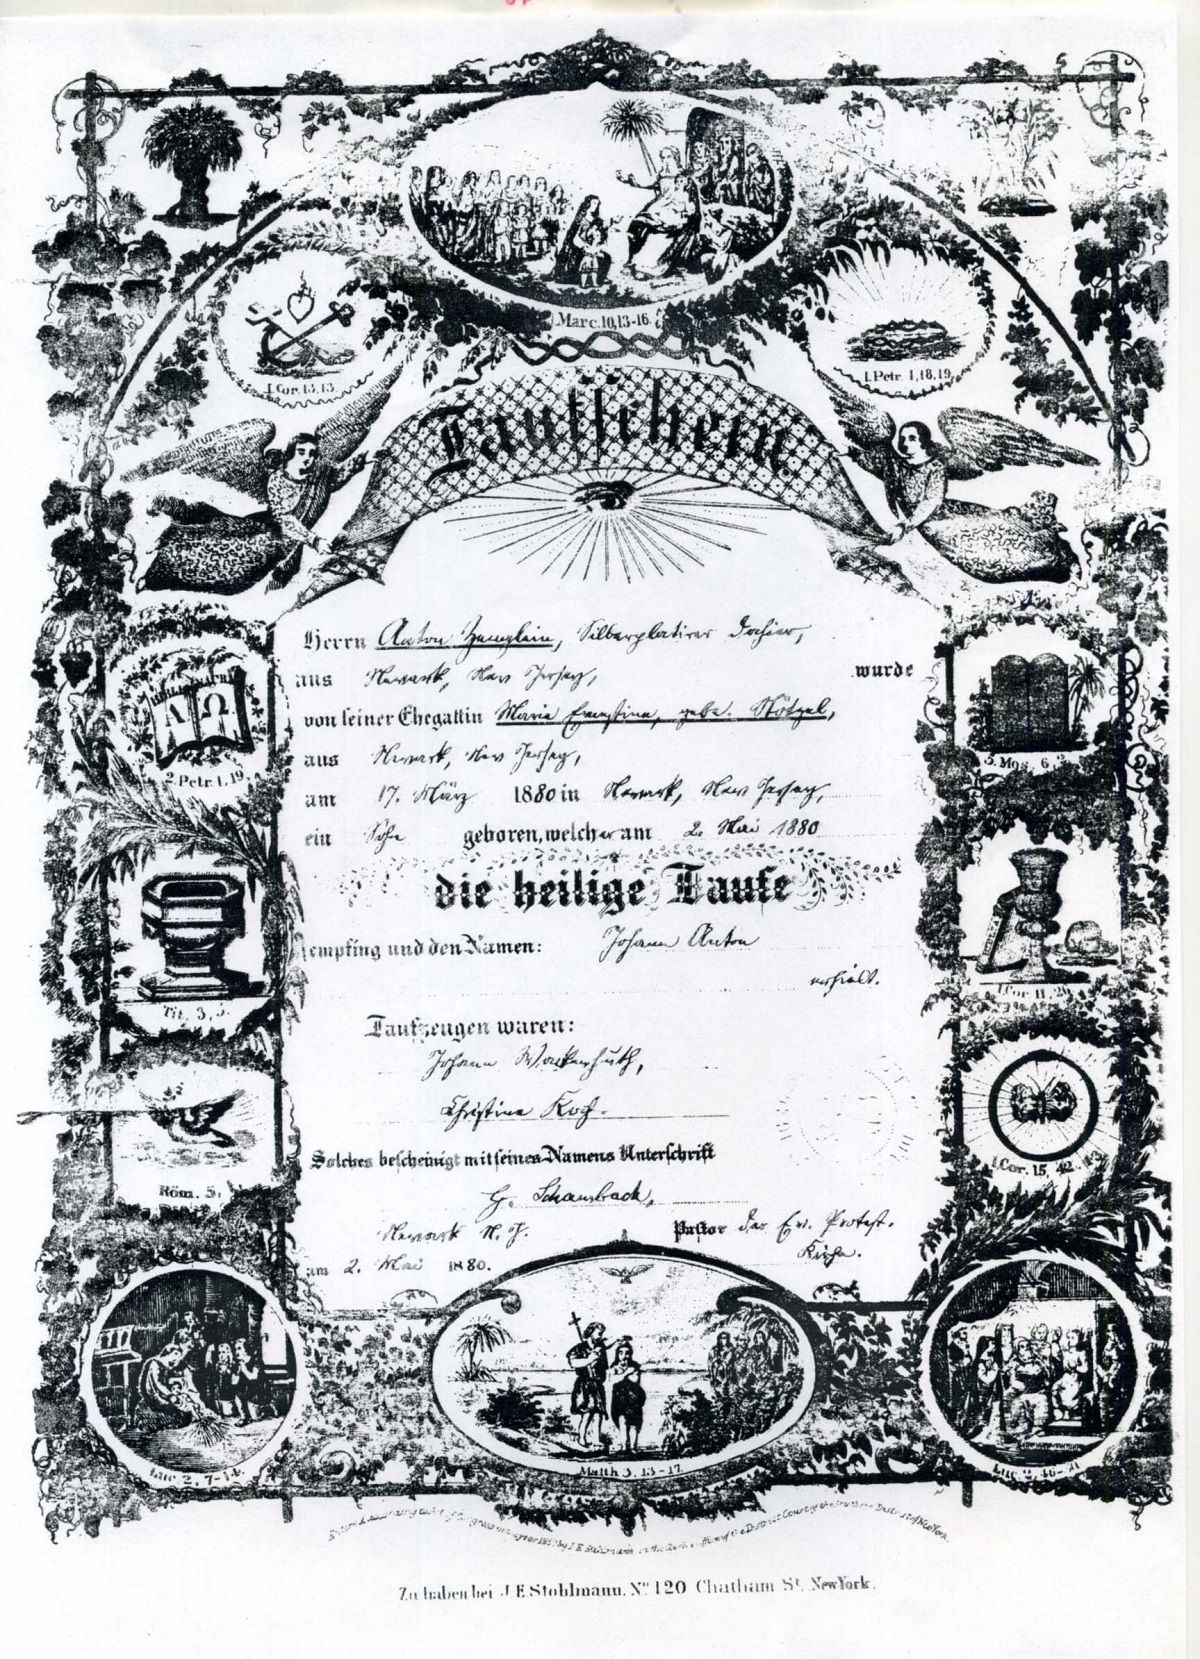 Marc. 10, 13-16.
1. Cor. 13, 13.
1. Petr. 1, 18, 19.
Taufschein
Herrn Anton
aus Newark, New Jersey, wurde
von seiner Ehegattin Maria Ernestina, gebr. Nötzel,
aus Newark, New Jersey,
am 17. März 1880 in Newark, New Jersey,
ein Sohn geboren, welcher am 2. Mai 1880
die heilige Taufe
empfing und den Namen: Johann Anton
erhielt.
Taufzeugen waren:
Johann
Christina Koch.
Solches bescheinigt mit seines Namens Unterschrift
G. Schambach,
Newark N. J. Pastor der Ev. Protest.
Kirche.
am 2. Mai 1880.
2. Petr. 1, 19.
Α Ω
Tit. 3, 5.
Röm. 5,
5. Mos. 6,
1. Cor. 11,
1. Cor. 15, 42
Luc. 2, 7-14.
Matth 3, 13-17.
Luc. 2, 46
Zu haben bei J. E. Stohlmann, No. 120 Chatham St. New York.